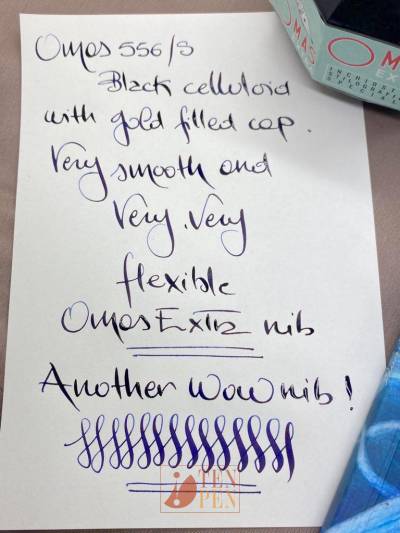 Omas 556/S
Black celluloid
with gold filled cap.
Very smooth and
Very, Very
flexible
Omas Extra nib
Another Wow nib!
TEN
PEN
OMAS
EX
INCHIOST
STILOGRAFI
SPECIAL